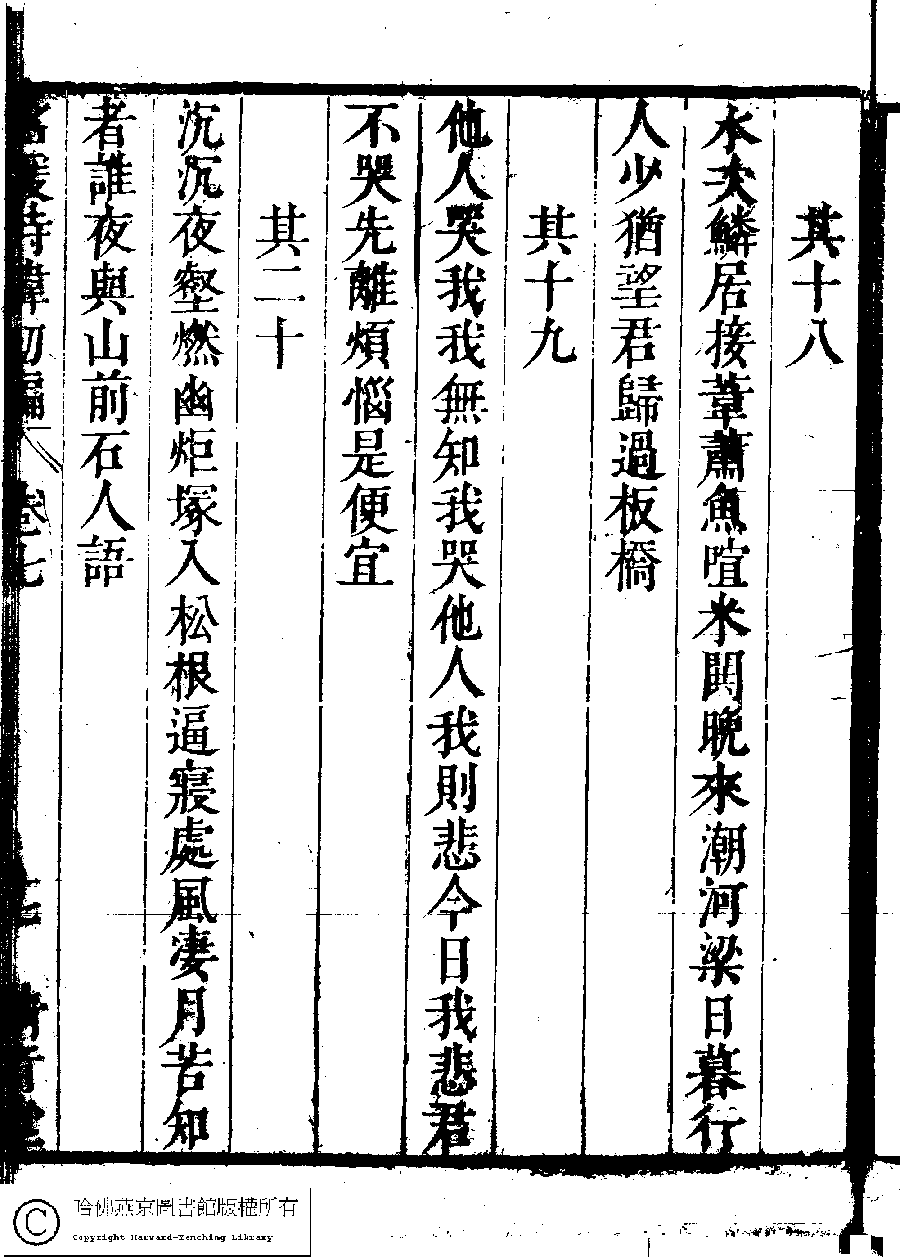 其十八
水夾鱗居接葦蕭魚喧米閧晚來潮河梁日暮行
人少猶望君歸過板橋
其十九
他人哭我我無知我哭他人我則悲今日我悲君
不哭先離煩惱是便宜
其二十
沉沉夜壑燃幽炬塚入松根逼寢處風凄月苦知
者誰夜與山前石人語
名媛詩緯初編 卷七
哈佛燕京圖書館版權所有
Copyright Harvard-Yenching Library